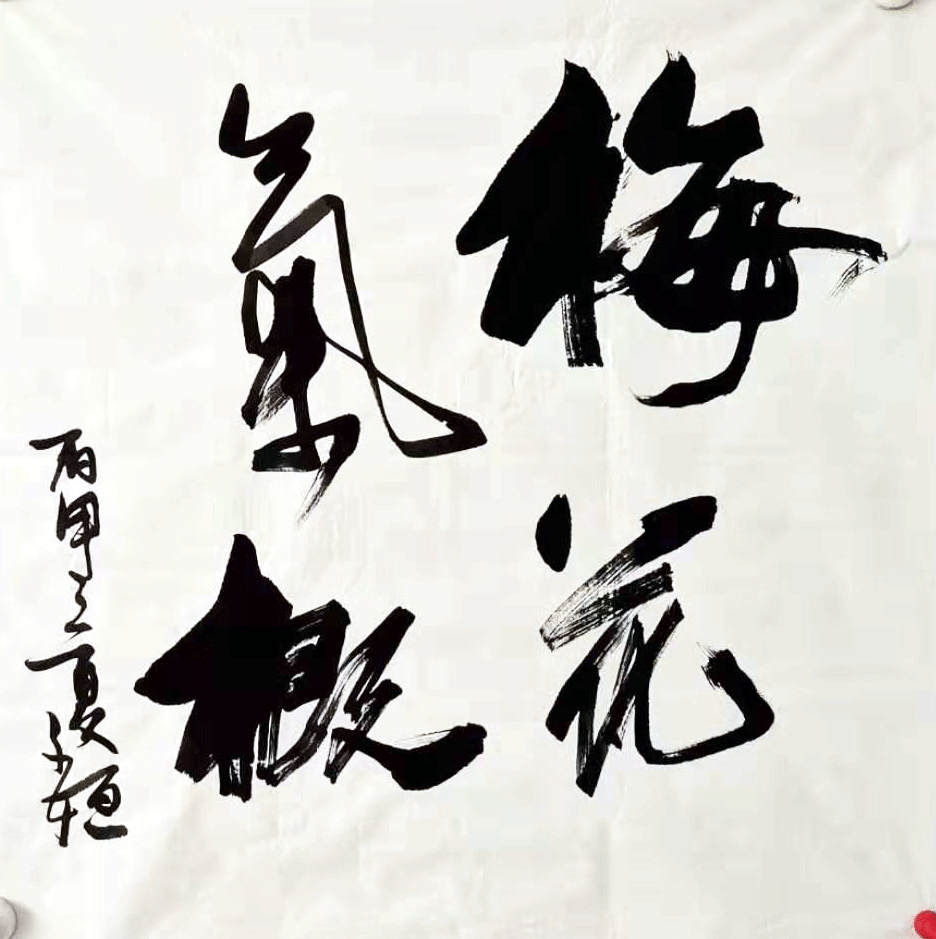 梅花
氣概
丙申之夏